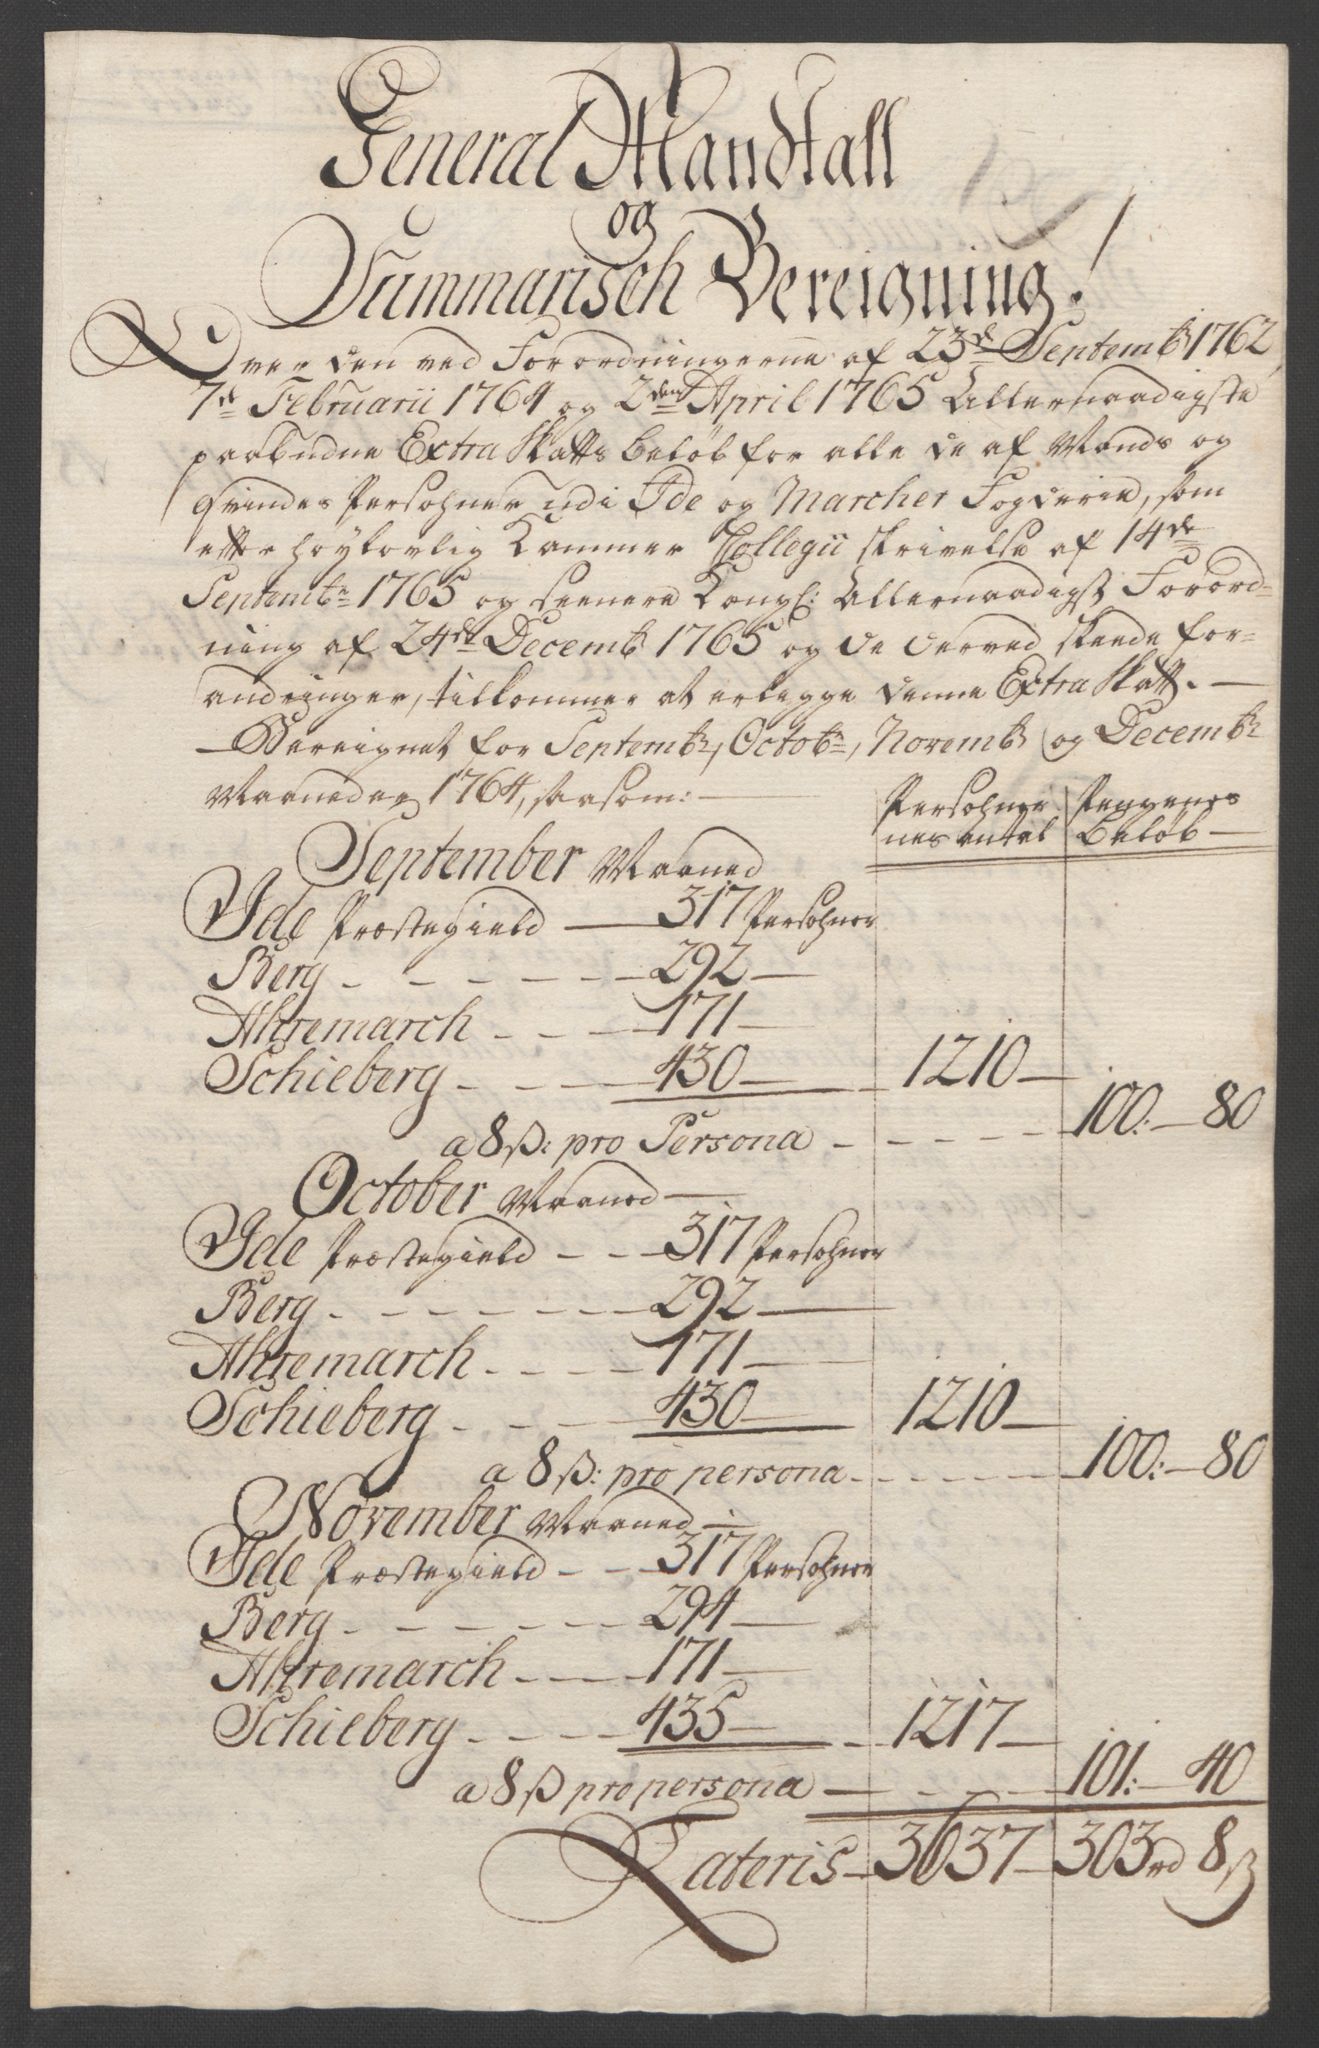 General Mandtall
og
Summarisch Bereigning!
Over den ved Forordningerne af 23de Septembr 1762,
7de Februarii 1764 og 2den April 1765 Allernaadigste
paabudne Extra Skatts Beløb for alle de af Mands og
Qvindes Persohner udi Ide og Marcher Fogderie, som
efter høylovlig Cammer Collegii skrivelse af 14de
Septembr 1765 og seenere Kongl: Allernaadigst Forord-
ning af 24de Decembr 1765 og de derved skeede for-
andringer, tilkommer at erlegge denne Extra Skatt. —
— Bereignet for Septembr, Octobr, Novembr og Decembr
Maaneder 1764, saasom: —
Persohner- Pengenes
nes antal Beløb —
September Maaned
Ide Præstegield — 317 Persohner
Berg - - - - 292 —
Ahremarch - - - 171 —
Schieberg - - - 430 — 1210 —
a 8 ß: pro Persona - - - - 100: — 80
October Maaned —
Ide Præstegield - - 317 Persohner
Berg - - - - - 292 —
Ahremarch - - - 171 —
Schieberg - - - 430 — 1210 —
a 8 ß: pro persona - - - - 100: — 80
November Maaned —
Ide Præstegield - - 317 Persohner
Berg - - - - - 294 —
Ahremarch - - - 171 —
Schieberg - - - 435 — 1217 —
a 8 ß pro persona — - - - 101: — 40
Lateris — 3637 — 303 rd 8 ß